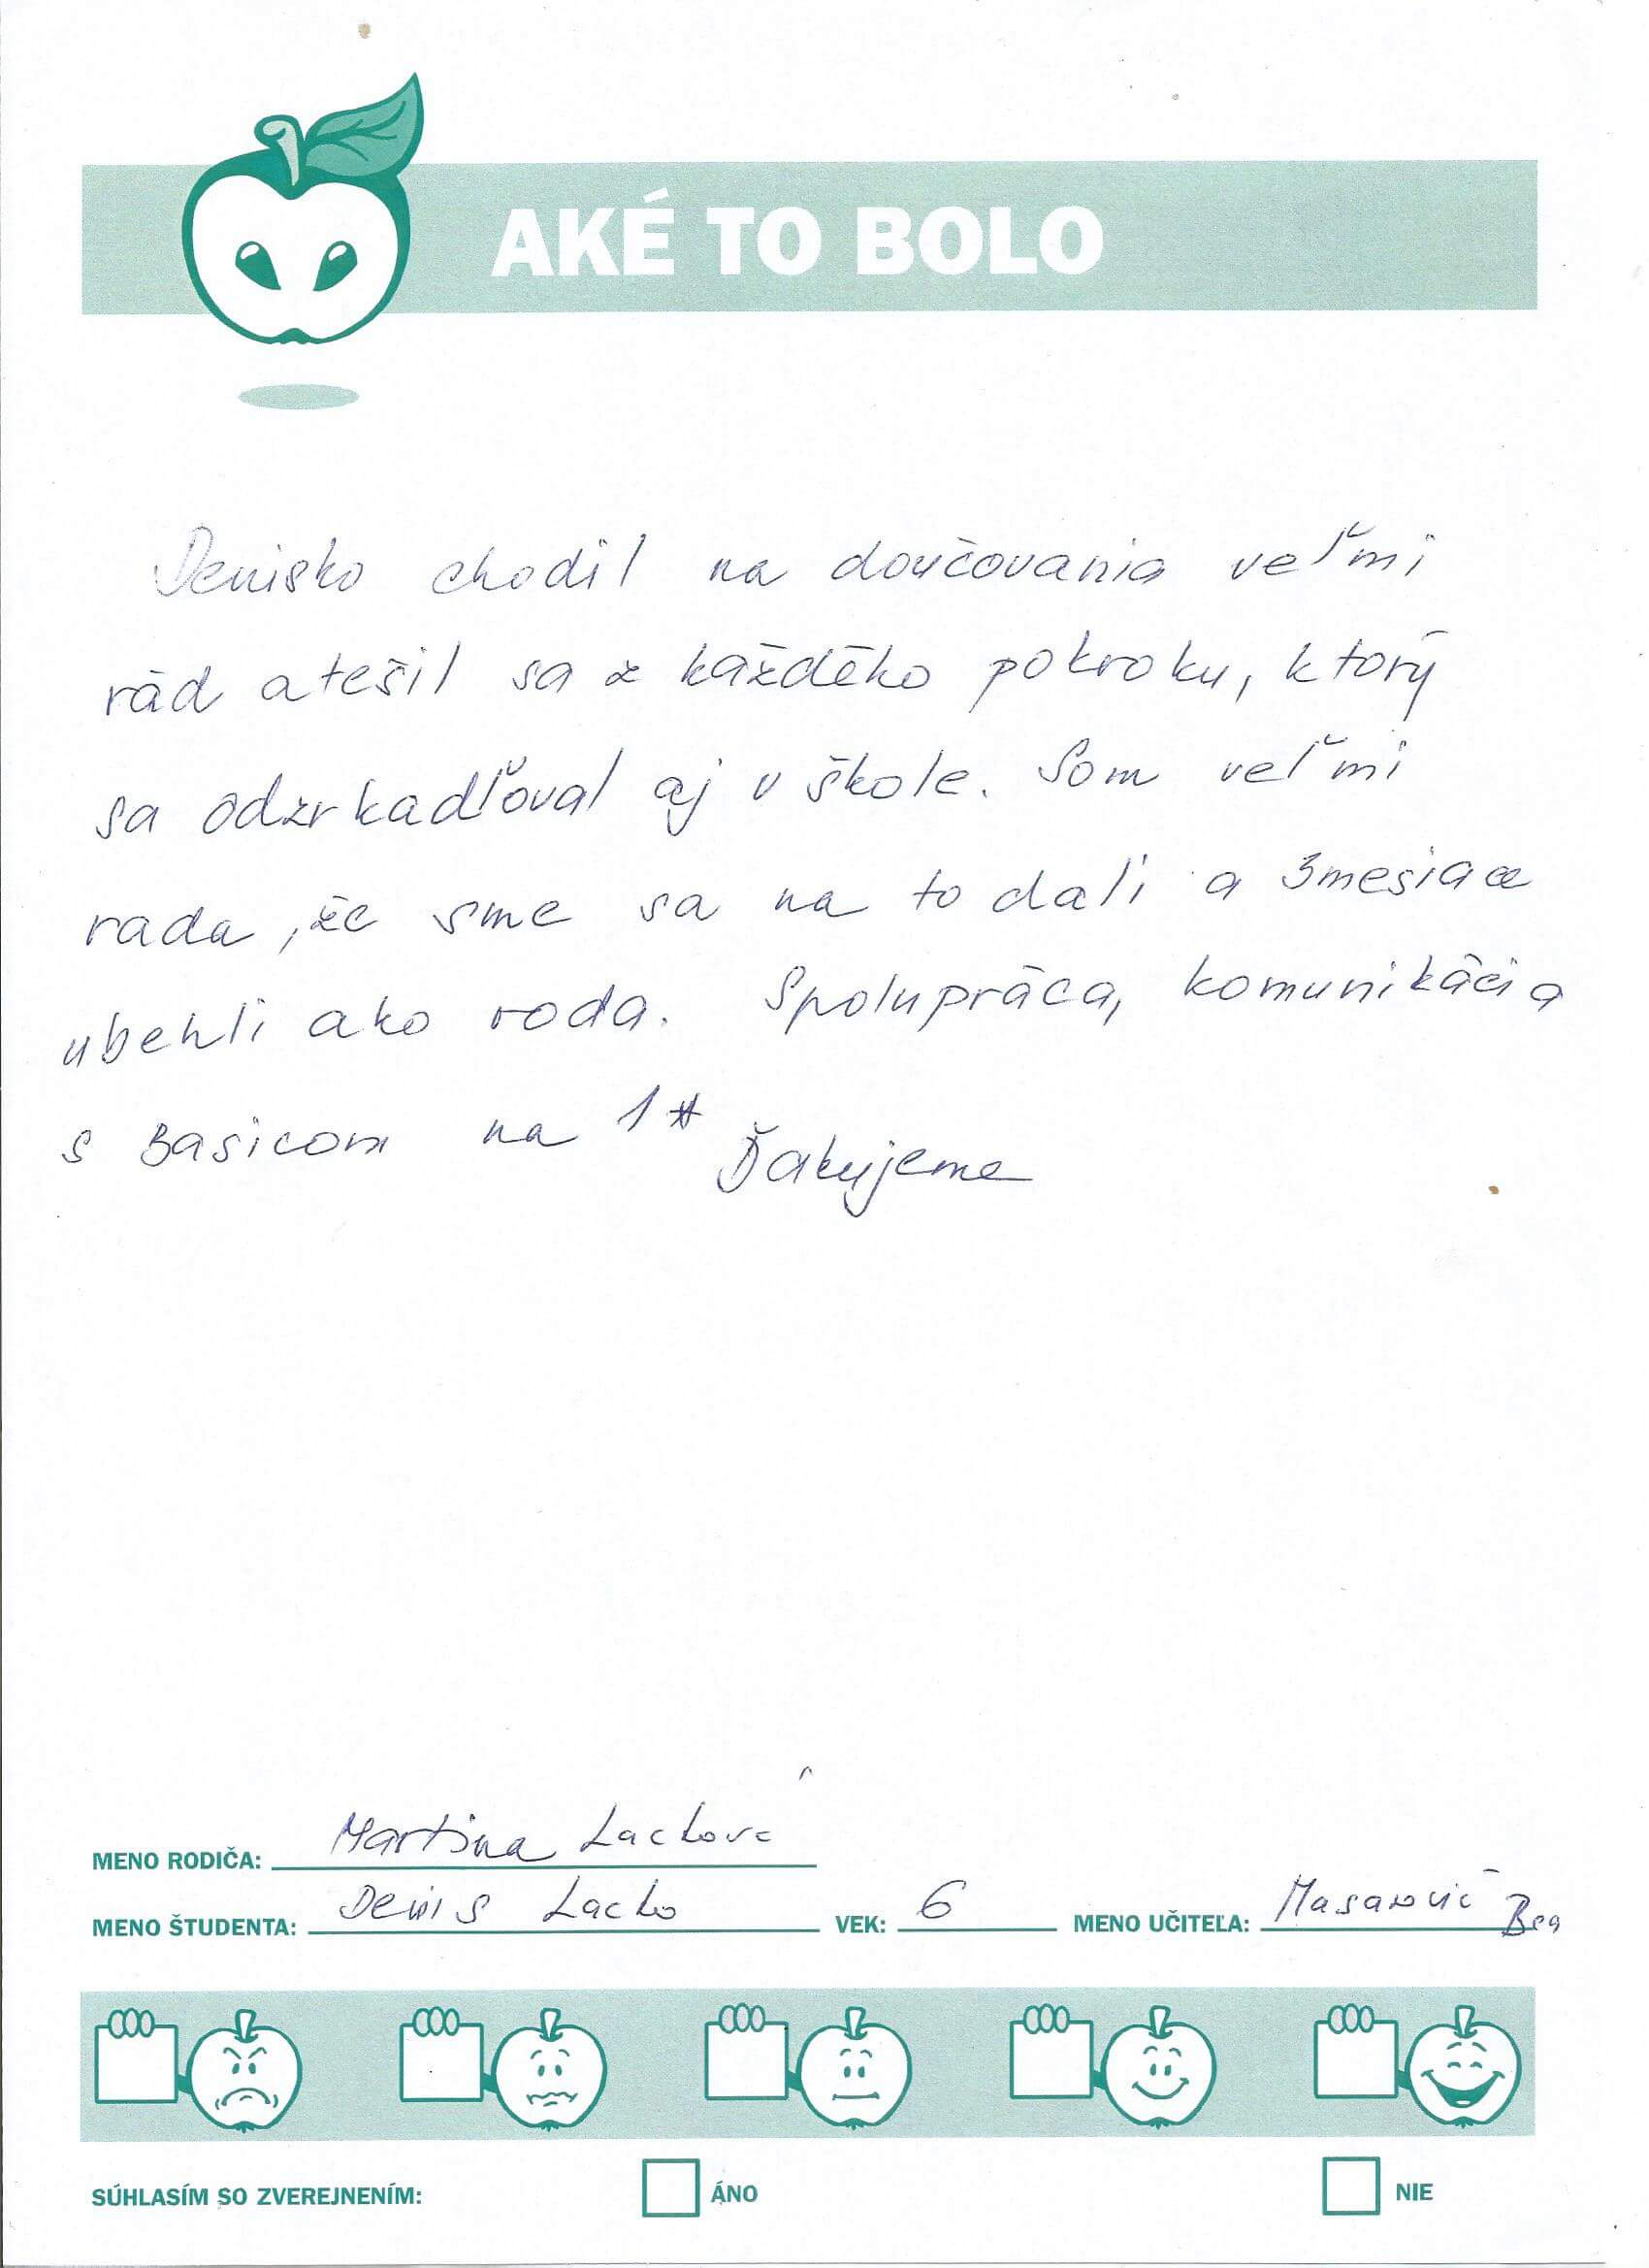 AKÉ TO BOLO
Denisko chodil na doučovania veľmi
rád a tešil sa z každého pokroku, ktorý
sa odzrkadľoval aj v škole. Som veľmi
rada, že sme sa na to dali a 3 mesiace
ubehli ako voda. Spolupráca, komunikácia
s Basicom na 1*
Ďakujeme
MENO RODIČA: Martina Lackova
MENO ŠTUDENTA: Denis Lacko VEK: 6 MENO UČITEĽA: Masarovič
SÚHLASÍM SO ZVEREJNENÍM: ÁNO NIE